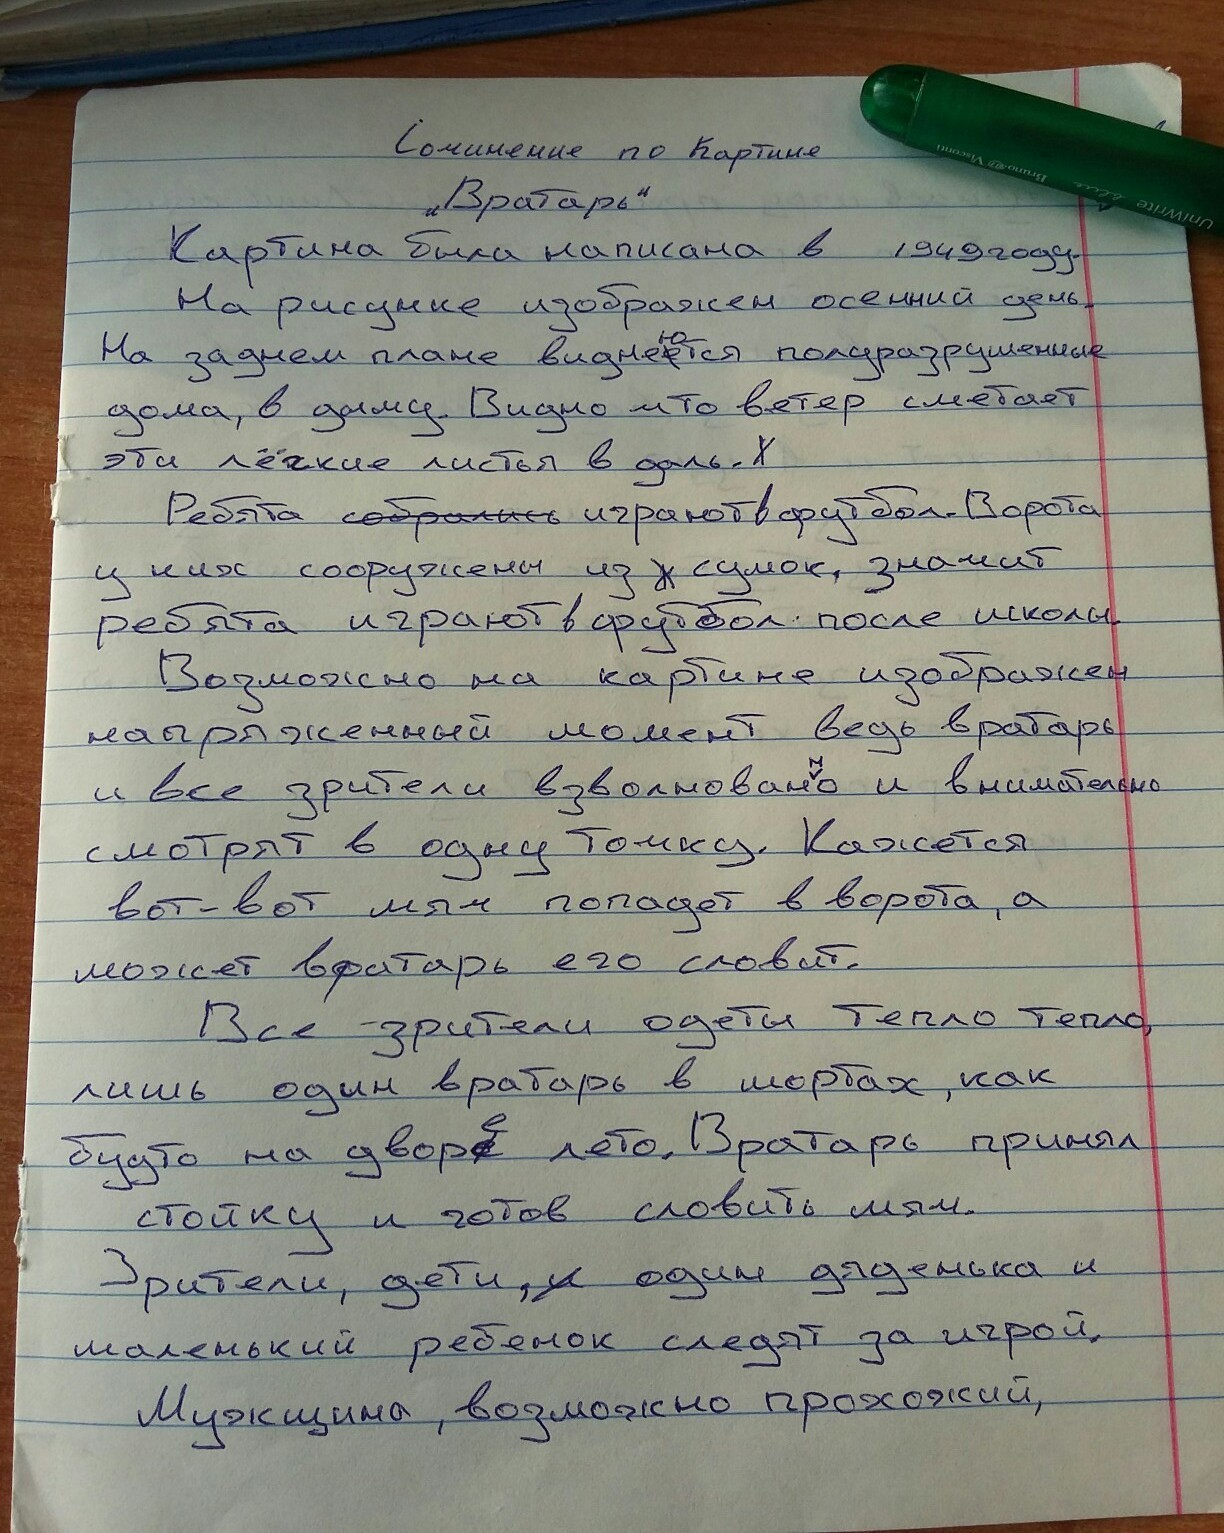 Сочинение по Картине
„Вратарь"
Картина была написана в 1949 году.
На рисунке изображен осенний день.
На заднем плане виднеются полуразрушенные
дома, в дыму. Видно что ветер сметает
эти лёгкие листья в даль.
Ребята собрались играют в футбол. Ворота
у них сооружены из сумок, значит
ребята играют в футбол после школы.
Возможно на картине изображен
напряженный момент ведь вратарь
и все зрители взволнованно и внимательно
смотрят в одну точку. Кажется
вот-вот мяч попадет в ворота, а
может вратарь его словит.
Все зрители одеты тепло тепло,
лишь один вратарь в шортах, как
будто на дворе лето. Вратарь принял
стойку и готов словить мяч.
Зрители, дети, и один дяденька и
маленький ребенок следят за игрой.
Мужщина, возможно прохожий,
UniWrite blue Bruno Visconti